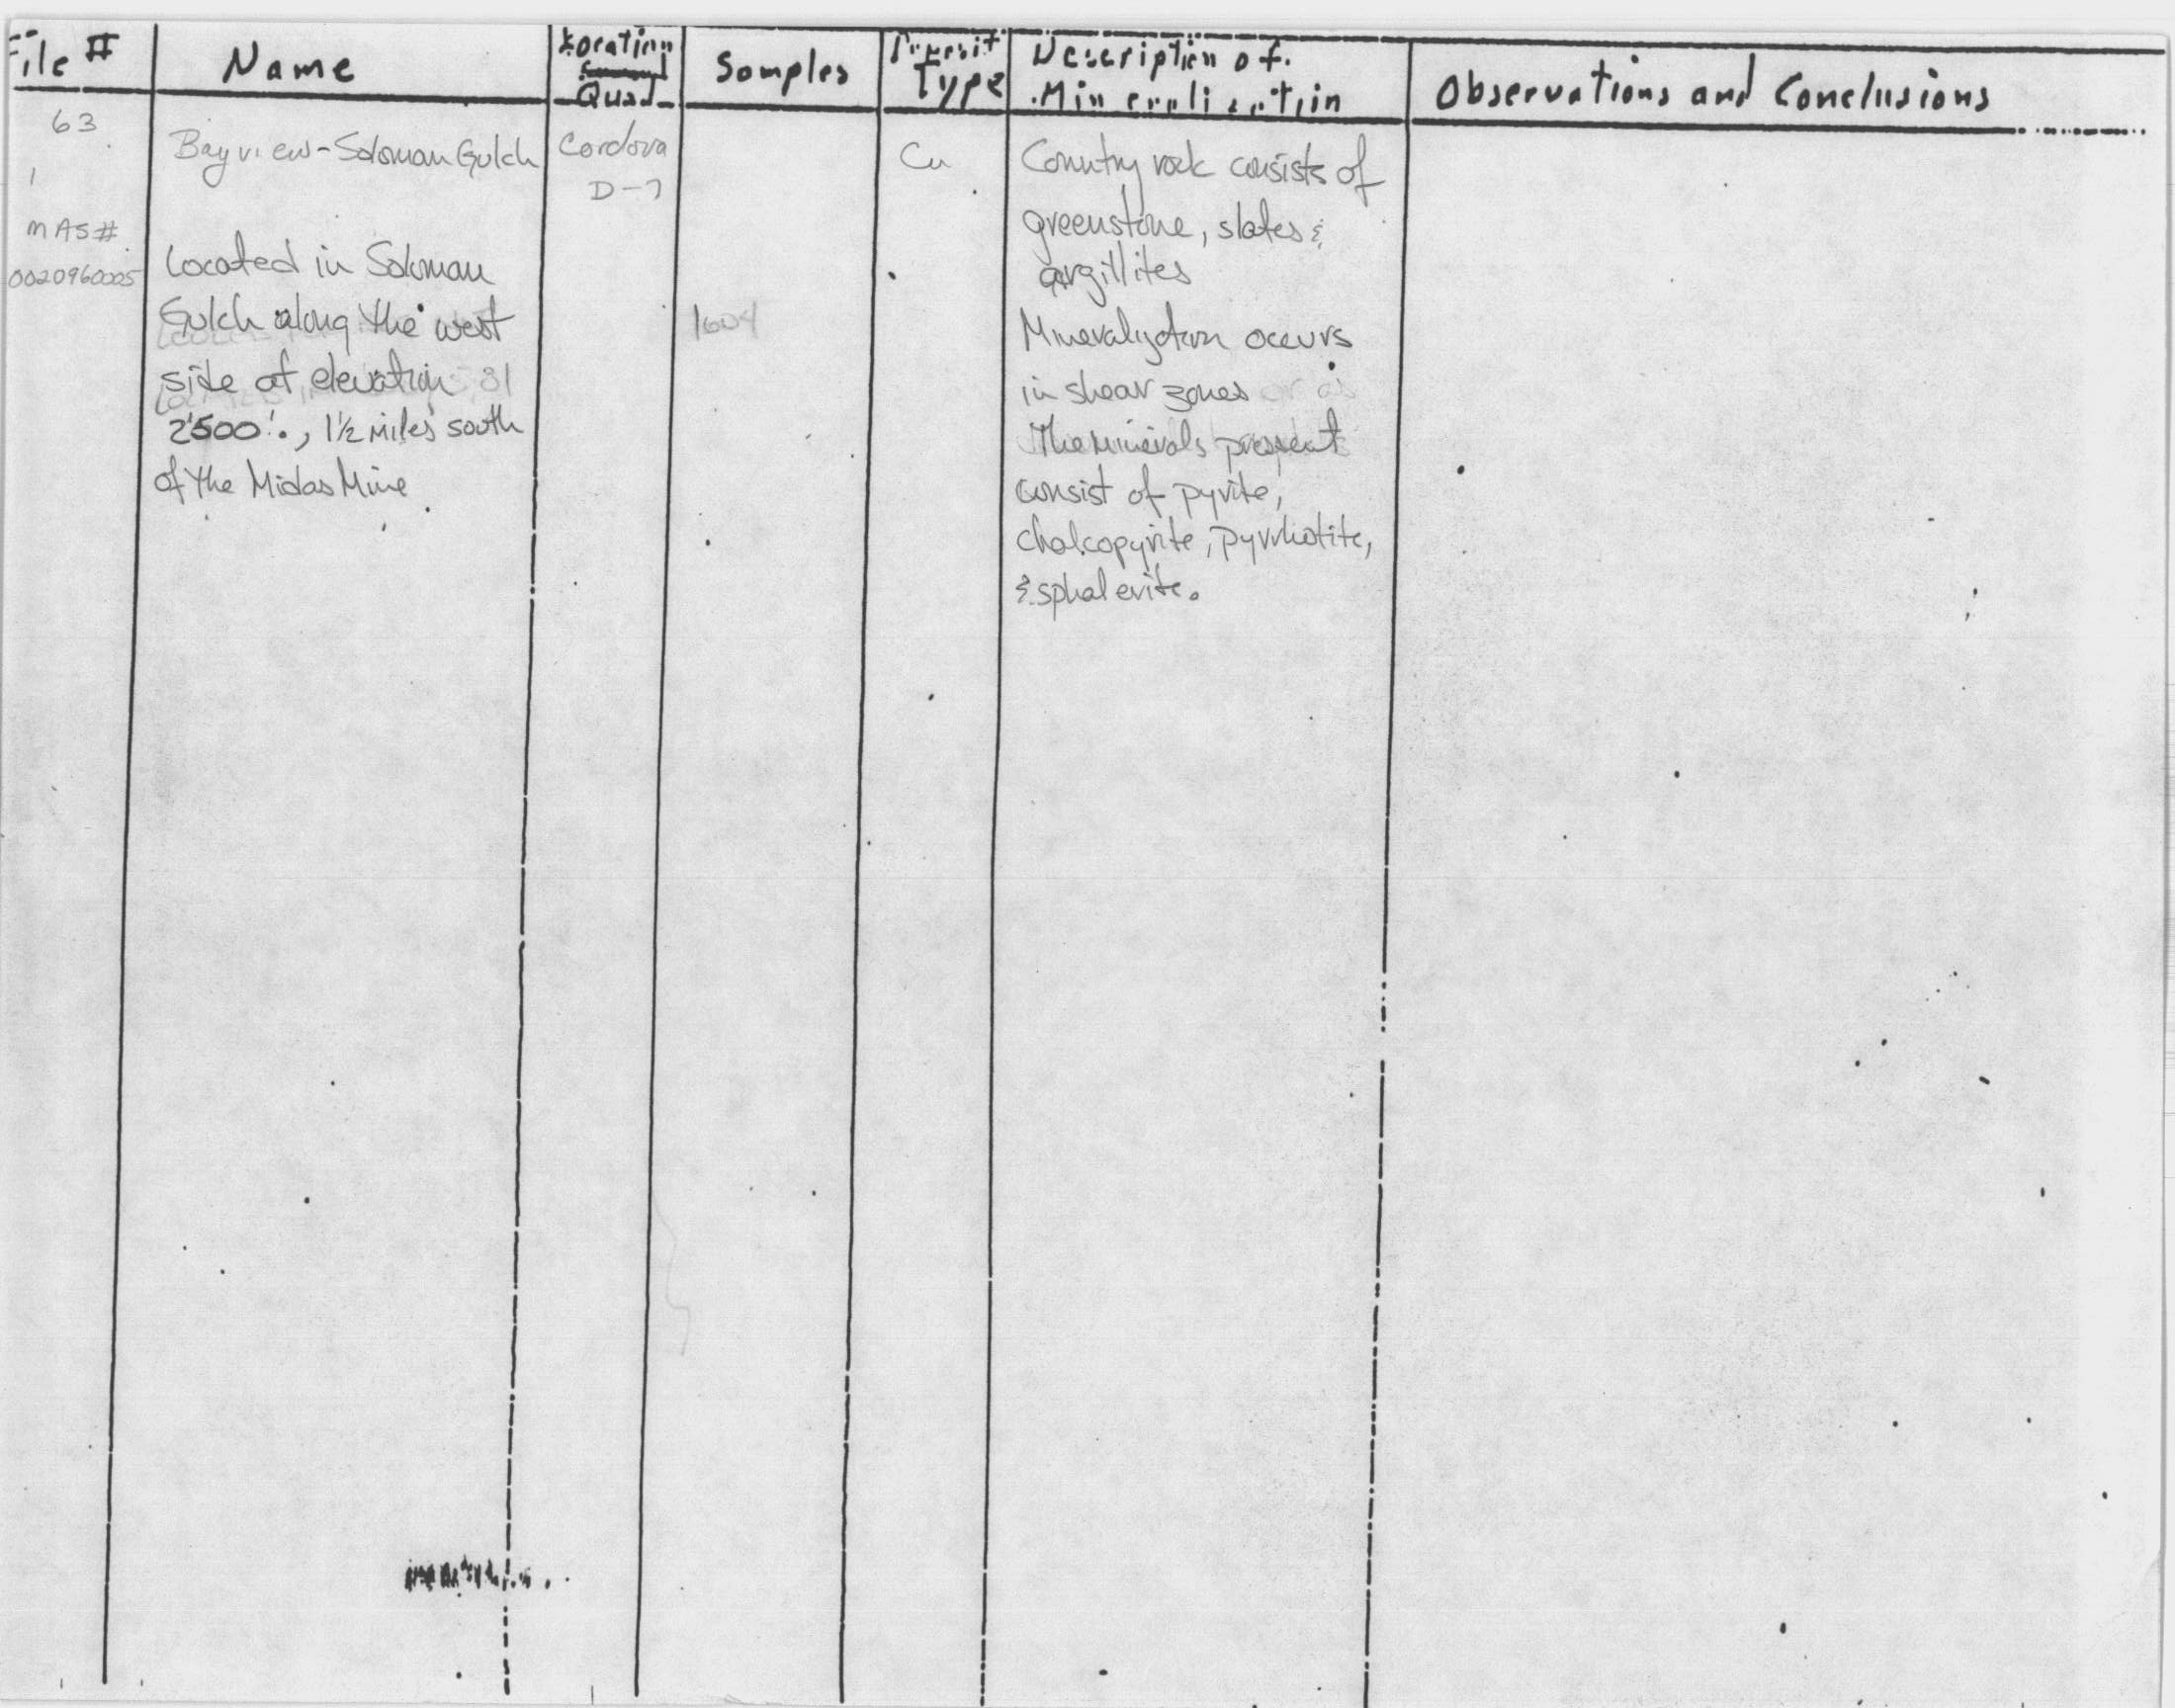 File #
Name
Location
Quad
Samples
Deposit
Type
Description of
Mineralization
Observations and Conclusions
63
1
MAS#
0020960005
Bayview-Soloman Gulch
Located in Soloman
Gulch along the west
side at elevation
2500'., 1½ miles south
of the Midas Mine
Cordova
D-7
1604
Cu
Country rock consists of
greenstone, slates &
argillites
Mineralization occurs
in shear zones
The minerals present
consist of pyrite,
chalcopyrite, pyrrhotite,
& sphalerite.